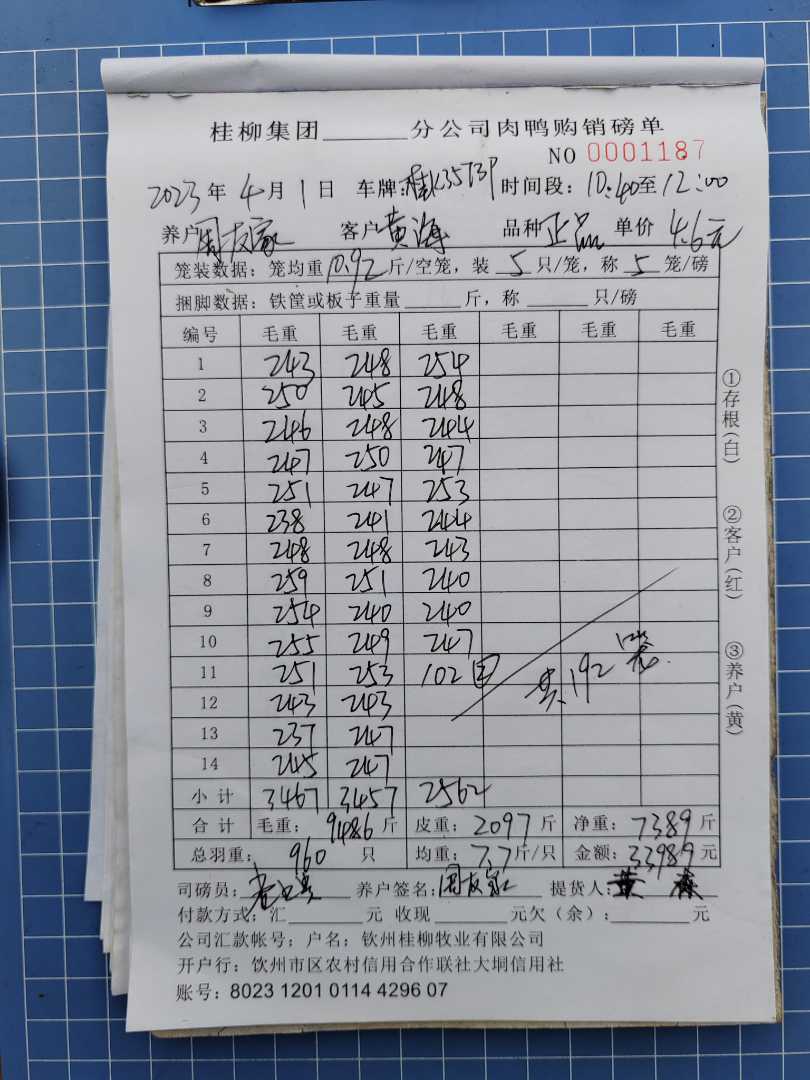 桂柳集团______分公司肉鸭购销磅单
NO 0001187
2023年4月1日 车牌:桂K35T3P 时间段:10:40至12:00
养户周友家 客户黄海 品种正品 单价4.6元
笼装数据:笼均重10.92斤/空笼,装5只/笼,称5笼/磅
捆脚数据:铁筐或板子重量______斤,称______只/磅
编号 毛重 毛重 毛重 毛重 毛重 毛重
1 243 248 254
2 250 245 248
3 246 248 244
4 247 250 247
5 251 247 253
6 238 241 244
7 248 248 243
8 259 251 240
9 254 240 240
10 255 249 247
11 251 253 102② 共192笼
12 243 243
13 237 247
14 245 247
小计 3467 3457 2562
合计 毛重:9486斤 皮重:2097斤 净重:7389斤
总羽重:960只 均重:7.7斤/只 金额:33989元
司磅员: 养户签名:周友家 提货人:黄
付款方式:汇______元 收现______元欠(余):______元
公司汇款帐号;户名;钦州桂柳牧业有限公司
开户行:饮州市区农村信用合作联社大垌信用社
账号:8023 1201 0114 4296 07
①存根(白)
②客户(红)
③养户(黄)